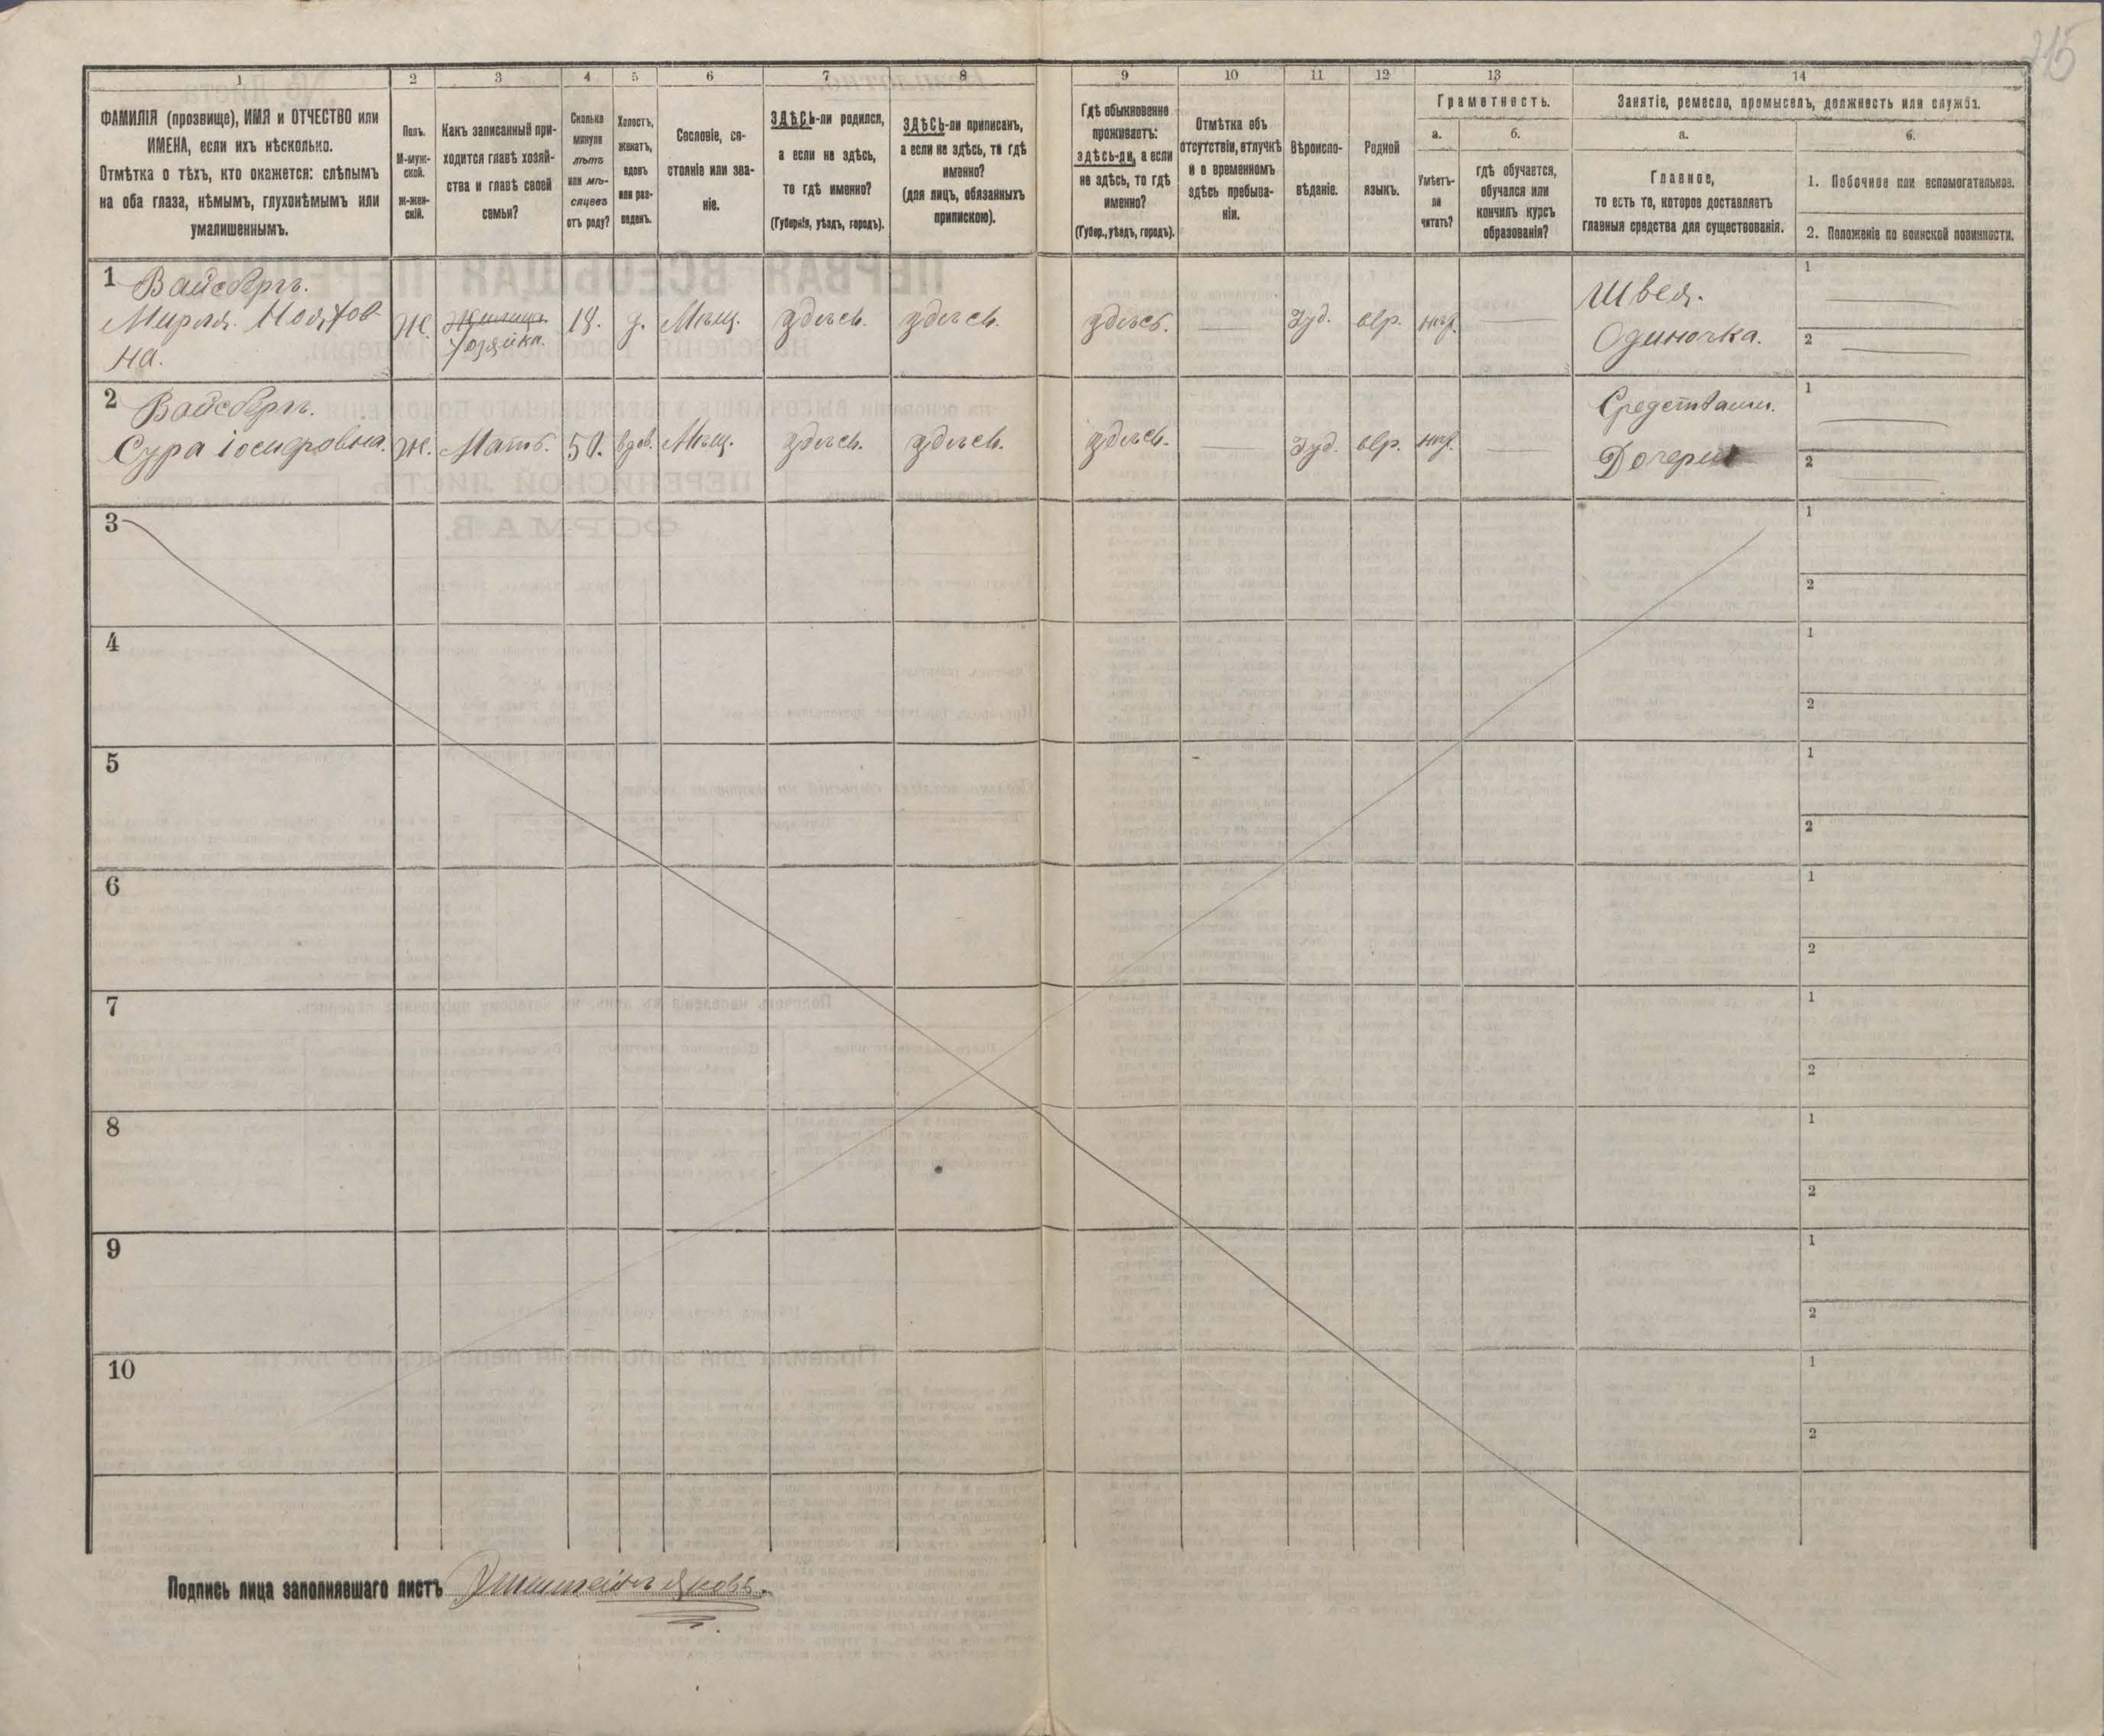 215
1
2
3
4
5
6
7
8
9
10
11
12
13
14
ФАМИЛІЯ (прозвище), ИМЯ и ОТЧЕСТВО или
ИМЕНА, если ихъ нѣсколько.
Отмѣтка о тѣхъ, кто окажется: слѣпымъ
на оба глаза, нѣмымъ, глухонѣмымъ или
умалишеннымъ.
Полъ.
М-муж-
ской.
Ж-жен-
скій.
Какъ записанный при-
ходится главѣ хозяй-
ства и главѣ своей
семьи?
Сколько
минуло
лѣтъ
или мѣ-
сяцевъ
отъ роду?
Холостъ,
женатъ,
вдовъ
или раз-
веденъ.
Сословіе, со-
стояніе или зва-
ніе.
ЗДѢСЬ-ли родился,
а если не здѣсь,
то гдѣ именно?
(Губернія, уѣздъ, городъ).
ЗДѢСЬ-ли приписанъ,
а если не здѣсь, то гдѣ
именно?
(для лицъ, обязанныхъ
припискою).
Гдѣ обыкновенно
проживаетъ:
здѣсь-ли, а если
не здѣсь, то гдѣ
именно?
(Губер., уѣздъ, городъ).
Отмѣтка объ
отсутствіи, отлучкѣ
и о временномъ
здѣсь пребыва-
ніи.
Вѣроиспо-
вѣданіе.
Родной
языкъ.
Грамотность.
а.
Умѣетъ-
ли
читать?
б.
гдѣ обучается,
обучался или
кончилъ курсъ
образованія?
Занятіе, ремесло, промыселъ, должность или служба.
а.
Главное,
то есть то, которое доставляетъ
главныя средства для существованія.
б.
1. Побочное или вспомогательное.
2. Положеніе по воинской повинности.
1 Вайсбергъ.
Мирля
на.
Ж.
Хозяйка.
18.
д.
Мѣщ.
здѣсь.
здѣсь.
здѣсь.
Іуд.
евр.
нѣт.
Швея.
Одиночка.
1
2
2 Вайсбергъ.
Сура Іосифовна.
Ж.
Мать.
50.
вдов.
Мѣщ.
здѣсь.
здѣсь.
здѣсь.
Іуд.
евр.
нѣт.
Средствами.
Дочери
1
2
3
1
2
4
1
2
5
1
2
6
1
2
7
1
2
8
1
2
9
1
2
10
1
2
Подпись лица заполнявшаго листъ